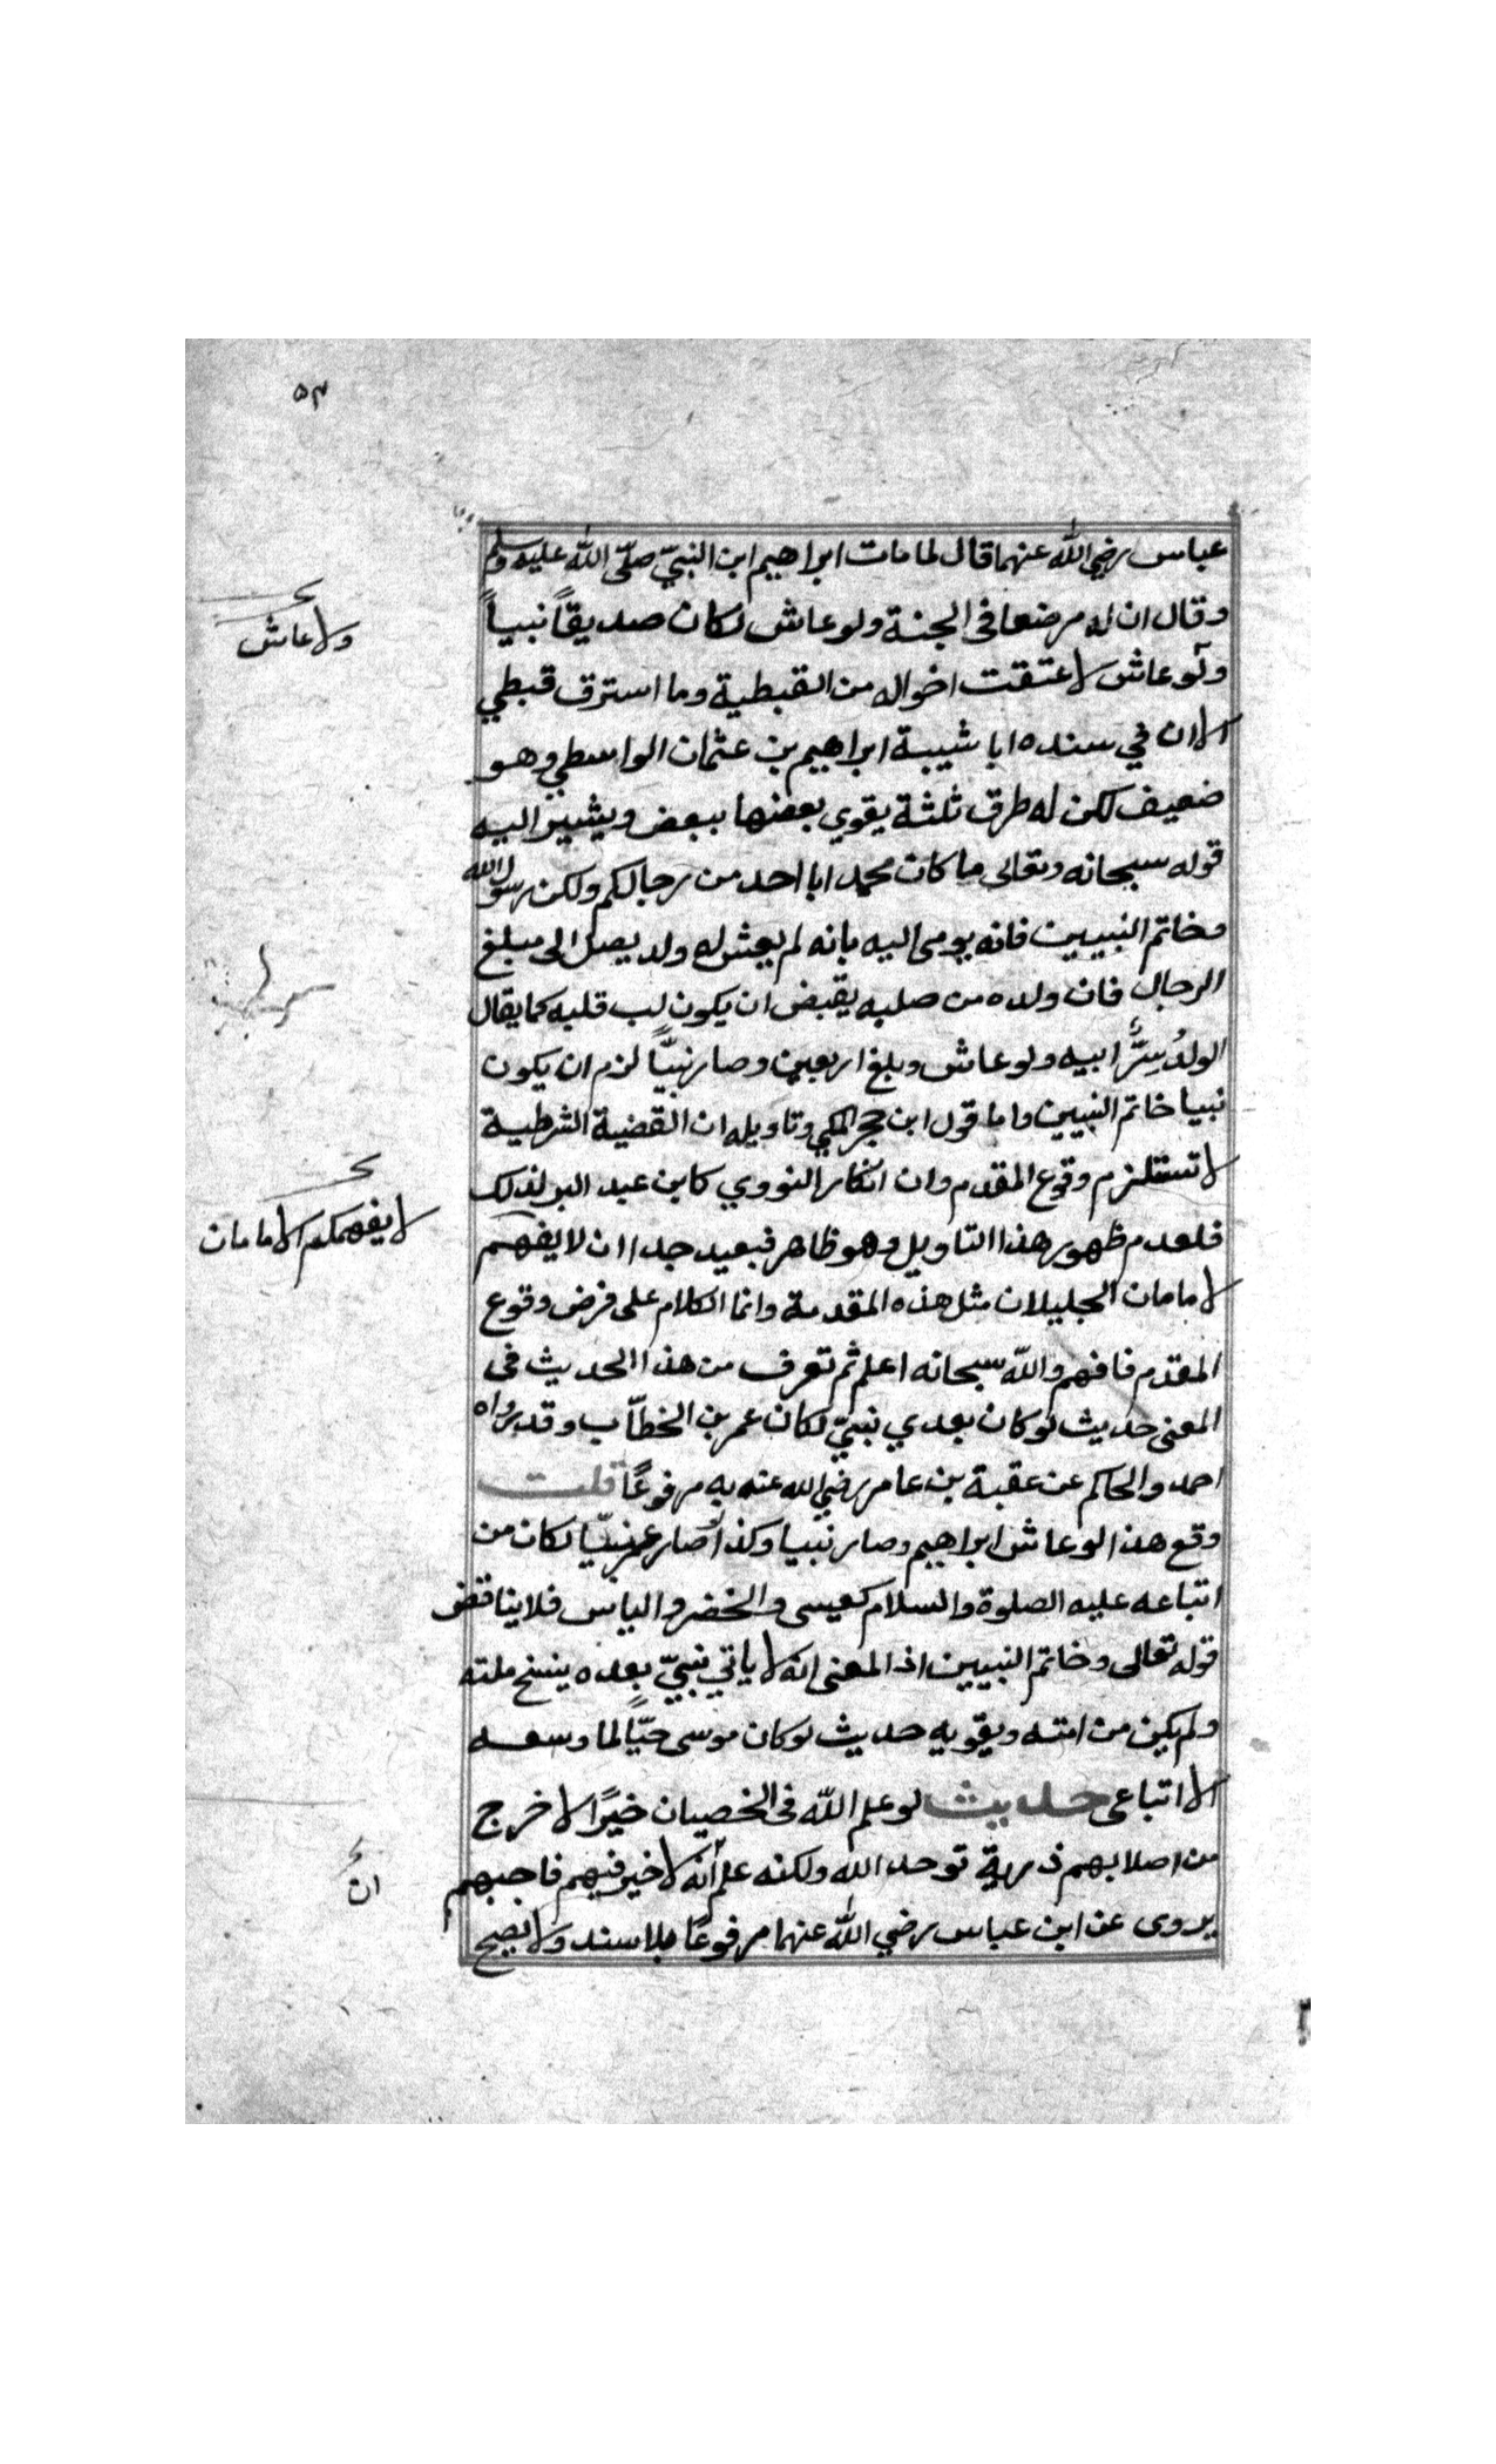 ٥٣
عباس رضي الله عنهما قال لما مات ابراهيم ابن النبيّ صلّى الله عليه وسلم
وقال ان له مرضعا فى الجنة ولو عاش لكان صديقاً نبياً
ولو عاش لاعتقت اخواله من القبطية وما استرق قبطي
الا ان في سنده ابا شيبة ابراهيم بن عثمان الواسطي وهو
ضعيف لكن له طرق ثلثة يقوي بعضها ببعض ويشير اليه
قوله سبحانه وتعالى ما كان محمد ابا احد من رجالكم ولكن رسول الله
وخاتم النبيين فانه يومى اليه بانه لم يعش له ولد يصل الى مبلغ
الرجال فان ولده من صلبه يقبض ان يكون لب قلبه كما يقال
الولدُ سِرُّ ابيه ولو عاش وبلغ اربعين وصار نبيّاً لزم ان يكون
نبيا خاتم النبيين واما قول ابن حجر المكي وتاويله ان القضية الشرطية
لا تستلزم وقوع المقدم وان انكار النووي كابن عبد البر لذلك
فلعدم ظهور هذا التاويل وهو ظاهر فبعيد جدا ان لا يفهم
لامامان الجليلان مثل هذه المقدمة وانما الكلام على فرض وقوع
المقدم فافهم والله سبحانه اعلم ثم تعرف من هذا الحديث فى
المعنى حديث لو كان بعدي نبيّ لكان عمر بن الخطّاب وقد رواه
احمد والحاكم عن عقبة بن عامر رضي الله عنه به مرفوعًا قلت
وقع هذا لو عاش ابراهيم وصار نبيا وكذا لو صار عمر نبيّا لكان من
اتباعه عليه الصلوة والسلام كعيسى والخضر والياس فلا يناقض
قوله تعالى وخاتم النبيين اذ المعنى انه لا ياتي نبيّ بعده ينسخ ملته
ولم يكن من امته ويقويه حديث لو كان موسى حيّاً لما وسعه
الا اتباعى حديث لو علم الله فى الخصيان خيرًا لاخرج
من اصلابهم ذرية توحد الله ولكنه علم انه لا خير فيهم فاجبهم
يروى عن ابن عباس رضي الله عنهما مرفوعًا بلا سند ولا يصح
ولا عاش
لا يفهمكم الامامان
ان